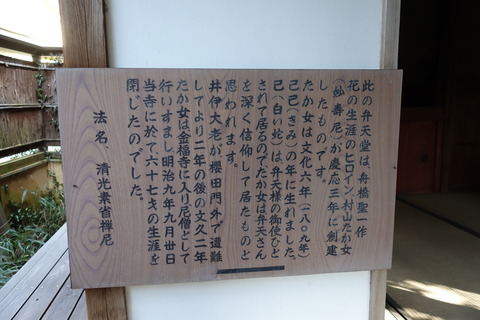 此の弁天堂は、舟橋聖一作
花の生涯のヒロイン、村山たか女
(妙壽尼)が慶応三年に創建
したものです。
たか女は文化六年(一八〇九年)
己巳(きみ)の年に生れました。
己(白い蛇)は弁天様の御使ひと
されて居るのでたか女は弁天さん
を深く信仰して居たものと
思われます。
井伊大老が櫻田門外で遭難
してより二年の後の文久二年
たか女は金福寺に入り尼僧として
行いすまし明治九年九月卅日
当寺に於て六十七才の生涯を
閉じたのでした。
法名、清光素省禅尼